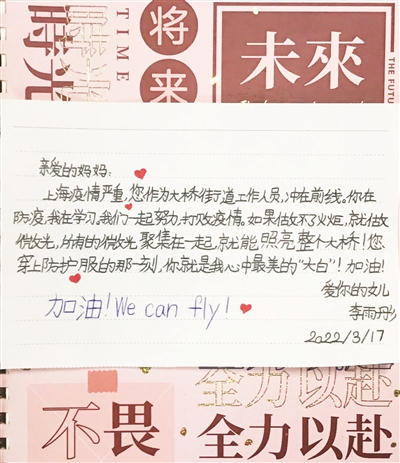 時光
時光
TIME
將
來
未來
THE FUTU
亲爱的妈妈：
上海疫情严重，您作为大桥街道工作人员，冲在前线。你在
防疫，我在学习，我们一起努力，打败疫情。如果做不了火炬，就做
微光，所有的微光聚集在一起，就能照亮整个大桥！您
穿上防护服的那一刻，你就是我心中最美的“大白”！加油！
爱你的女儿
李雨彤
加油！We can fly！
2022/3/17
全力以赴
不畏
全力以赴